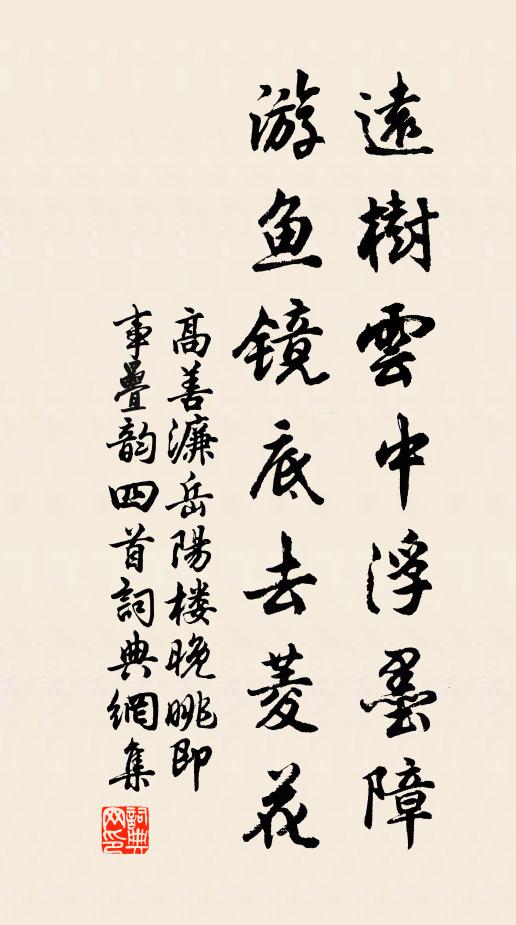 遠樹雲中浮墨障
游鱼镜底去菱花
高善濂岳陽楼晚眺即
事疊韵四首詞典網集
詞典网印